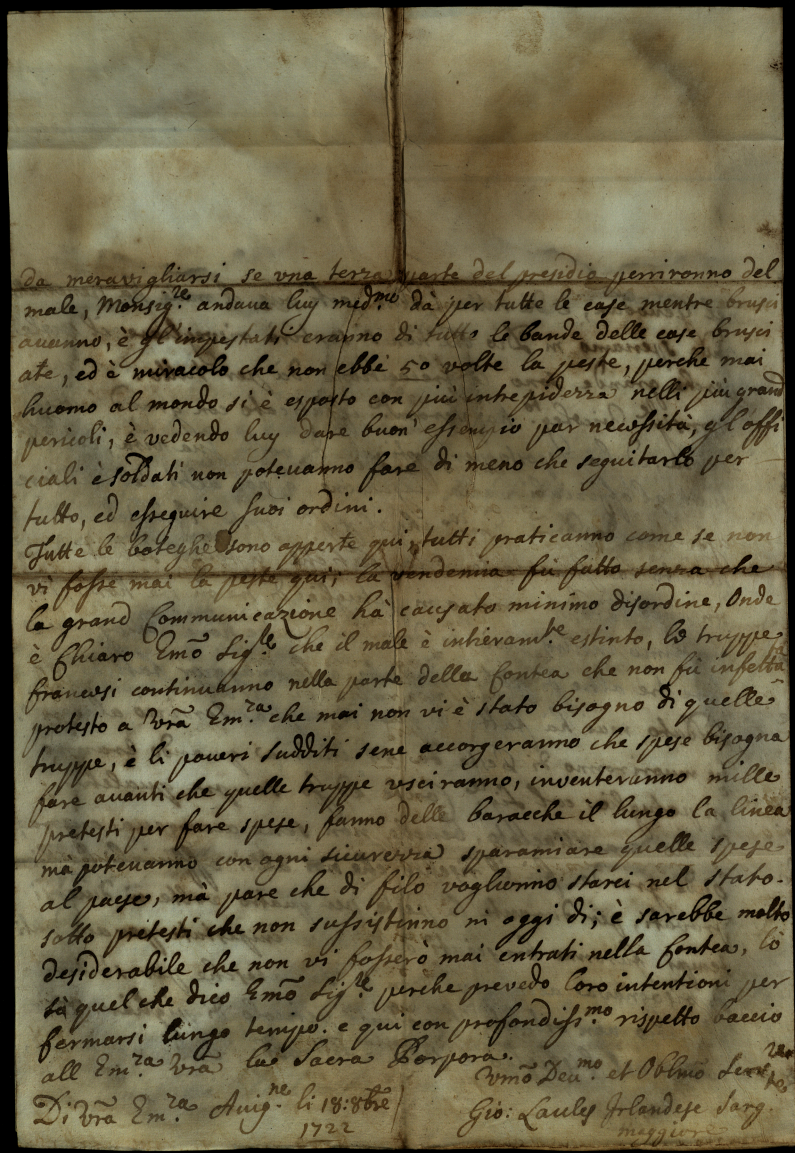 da meravigliarsi se vna terza parte del presidio perrironno del
male, Monsig.re andaua luy med.mo dà per tutte le case mentre brusci
auanno, è gl'impestati eranno di tutte le bande delle case brusci
ate, ed è miracolo che non ebbe 50 volte la peste, perche mai
huomo al mondo si è esposto con più intrepidezza nelli più grand
pericoli, è vedendo luy dare buon' essempio par necessità, gl'offi
ciali è soldati non poteuanno fare di meno che seguitarlo per
tutto, ed esseguire suoi ordini.
Tutte le boteghe sono apperte qui, tutti praticanno come se non
vi fosse mai la peste qui; la vendemia fù fatto senza che
la grand Communicazione hà causato minimo disordine, Onde
è Chiaro Emõ Sig.re che il male è intieram.te estinto, le truppe
francesi continuanno nella parte della Contea che non fù infetta
protesto a Vrã Em.za che mai non vi è stato bisogno di quelle
truppe, è li poueri sudditi sene accorgeranno che spese bisogna
fare auanti che quelle truppe vsciranno, inventeranno mille
pretesti per fare spese, fanno delle baracche il lungo la linea
mà poteuanno con ogni sicurezza sparamiare quelle spese
al paese, mà pare che di filo voglionno starci nel stato
sotto pretesti che non sussistinno ni oggi di; è sarebbe molto
desiderabile che non vi fosserò mai entrati nella Contea, Iò
sà quel che dico Emõ Sig.re perche prevedo loro intentioni per
fermarsi lungo tempo. e qui con profondiss.mo rispetto baccio
all Em.za Vrã la Sacra Porpora.
Vmõ Deu.mo et Oblmõ Ser.re
Di Vrã Em.za Auig.ne li 18: 8bre
1722
Gio: Laules Irlandese Sarg.
maggiore